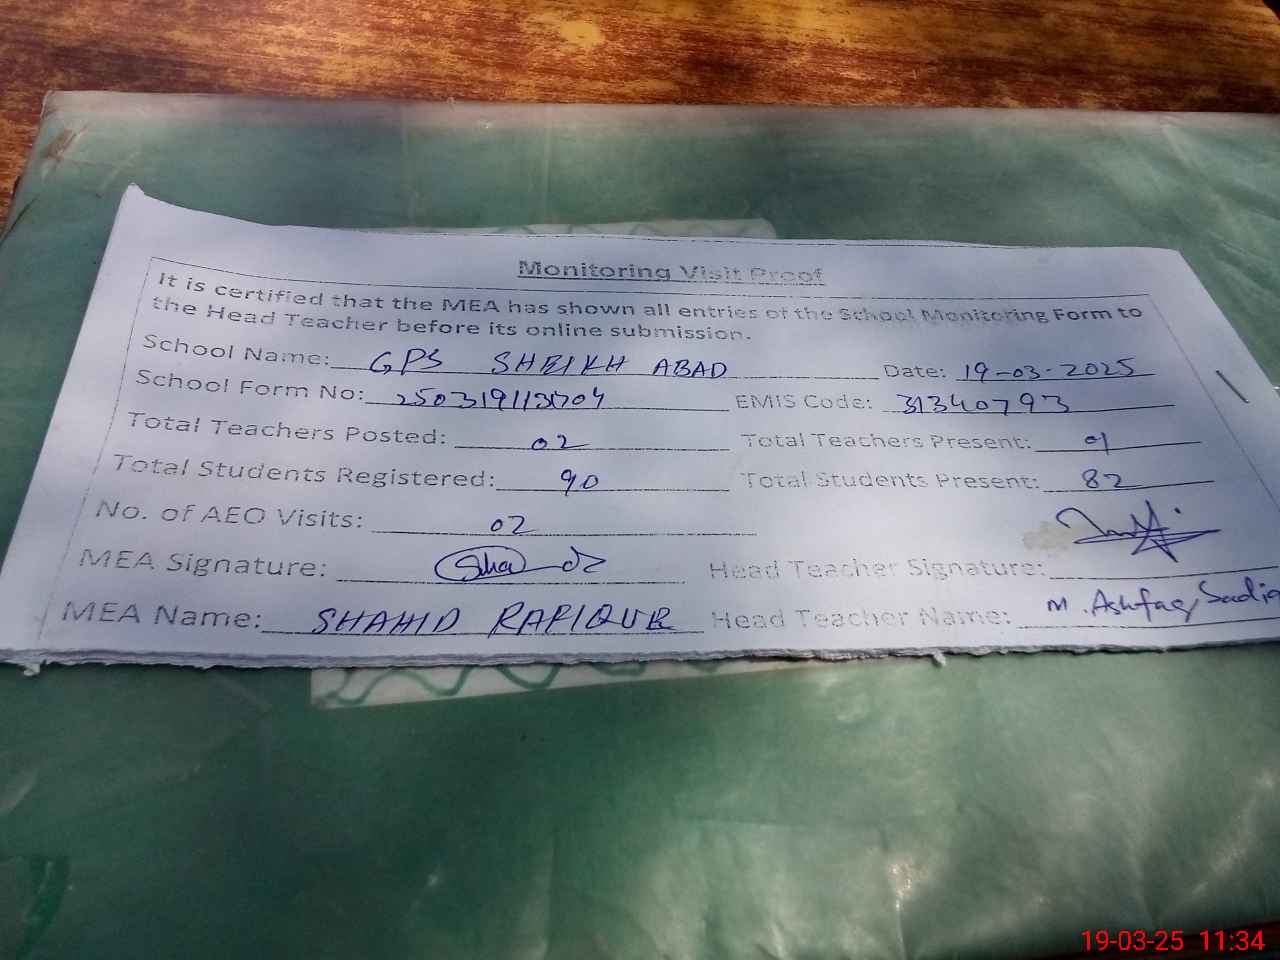 Monitoring Visit Proof
It is certified that the MEA has shown all entries of the School Monitoring Form to
the Head Teacher before its online submission.
School Name: GPS SHEIKH ABAD Date: 19-03-2025
School Form No: EMIS Code: 31340793
Total Teachers Posted: 02 Total Teachers Present: 01
Total Students Registered: 90 Total Students Present: 82
No. of AEO Visits: 02
MEA Signature: Head Teacher Signature:
MEA Name: SHAHID RAFIQUE Head Teacher Name: M. Ashfaq Sadiq
19-03-25 11:34